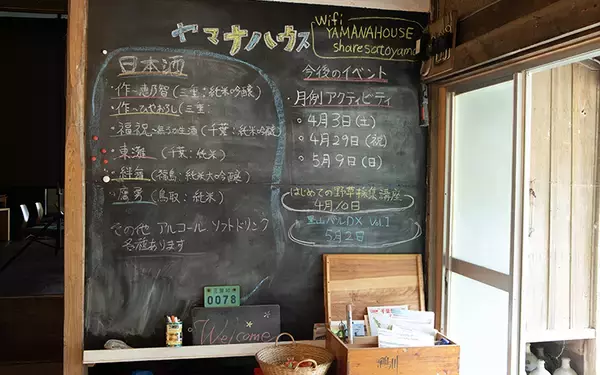 ヤマナハウス
Wifi
YAMANAHOUSE
sharesatoyama
日本酒
・作〜恵乃智(三重:純米吟醸)
・作〜ひやおろし(三重:
・福祝(千葉:純米吟醸)
・東灘(千葉:純米)
(福島:純米大吟醸)
・鷹勇(鳥取:純米)
その他 アルコール ソフトドリンク
各種あります
今後のイベント
・月例アクティビティ
○4月3日(土)
○4月29日(祝)
○5月9日(日)
はじめての野草 講座
4月10日
里山 DX Vol.1
5月2日
0078
Welcome